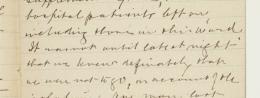 hospital patients left on
including those on this ward.
It was not until late at night
that we knew definately that
we were not to go, on account of the